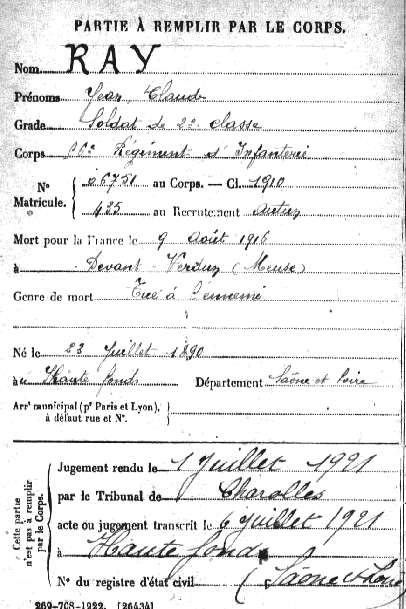 PARTIE À REMPLIR PAR LE CORPS.
Nom RAY
Prénoms Jean, Claude
Grade Soldat de 2e classe
Corps Régiment d'Infanterie
Nº Matricule. 06751 au Corps. — Cl. 1910
425 au Recrutement Autun
Mort pour la France le 9 Août 1916
à Devant Verdun (Meuse)
Genre de mort Tué à l'ennemi
Né le 23 Juillet 1890
à Haute fonds Département Saône et Loire
Arrt municipal (pr Paris et Lyon),
à défaut rue et Nº.
Cette partie n'est pas à remplir par le Corps.
Jugement rendu le 1 Juillet 1921
par le Tribunal de Charolles
acte ou jugement transcrit le 6 Juillet 1921
à Haute fonds
Nº du registre d'état civil (Saône & Loire
269-708-1922. [26434]